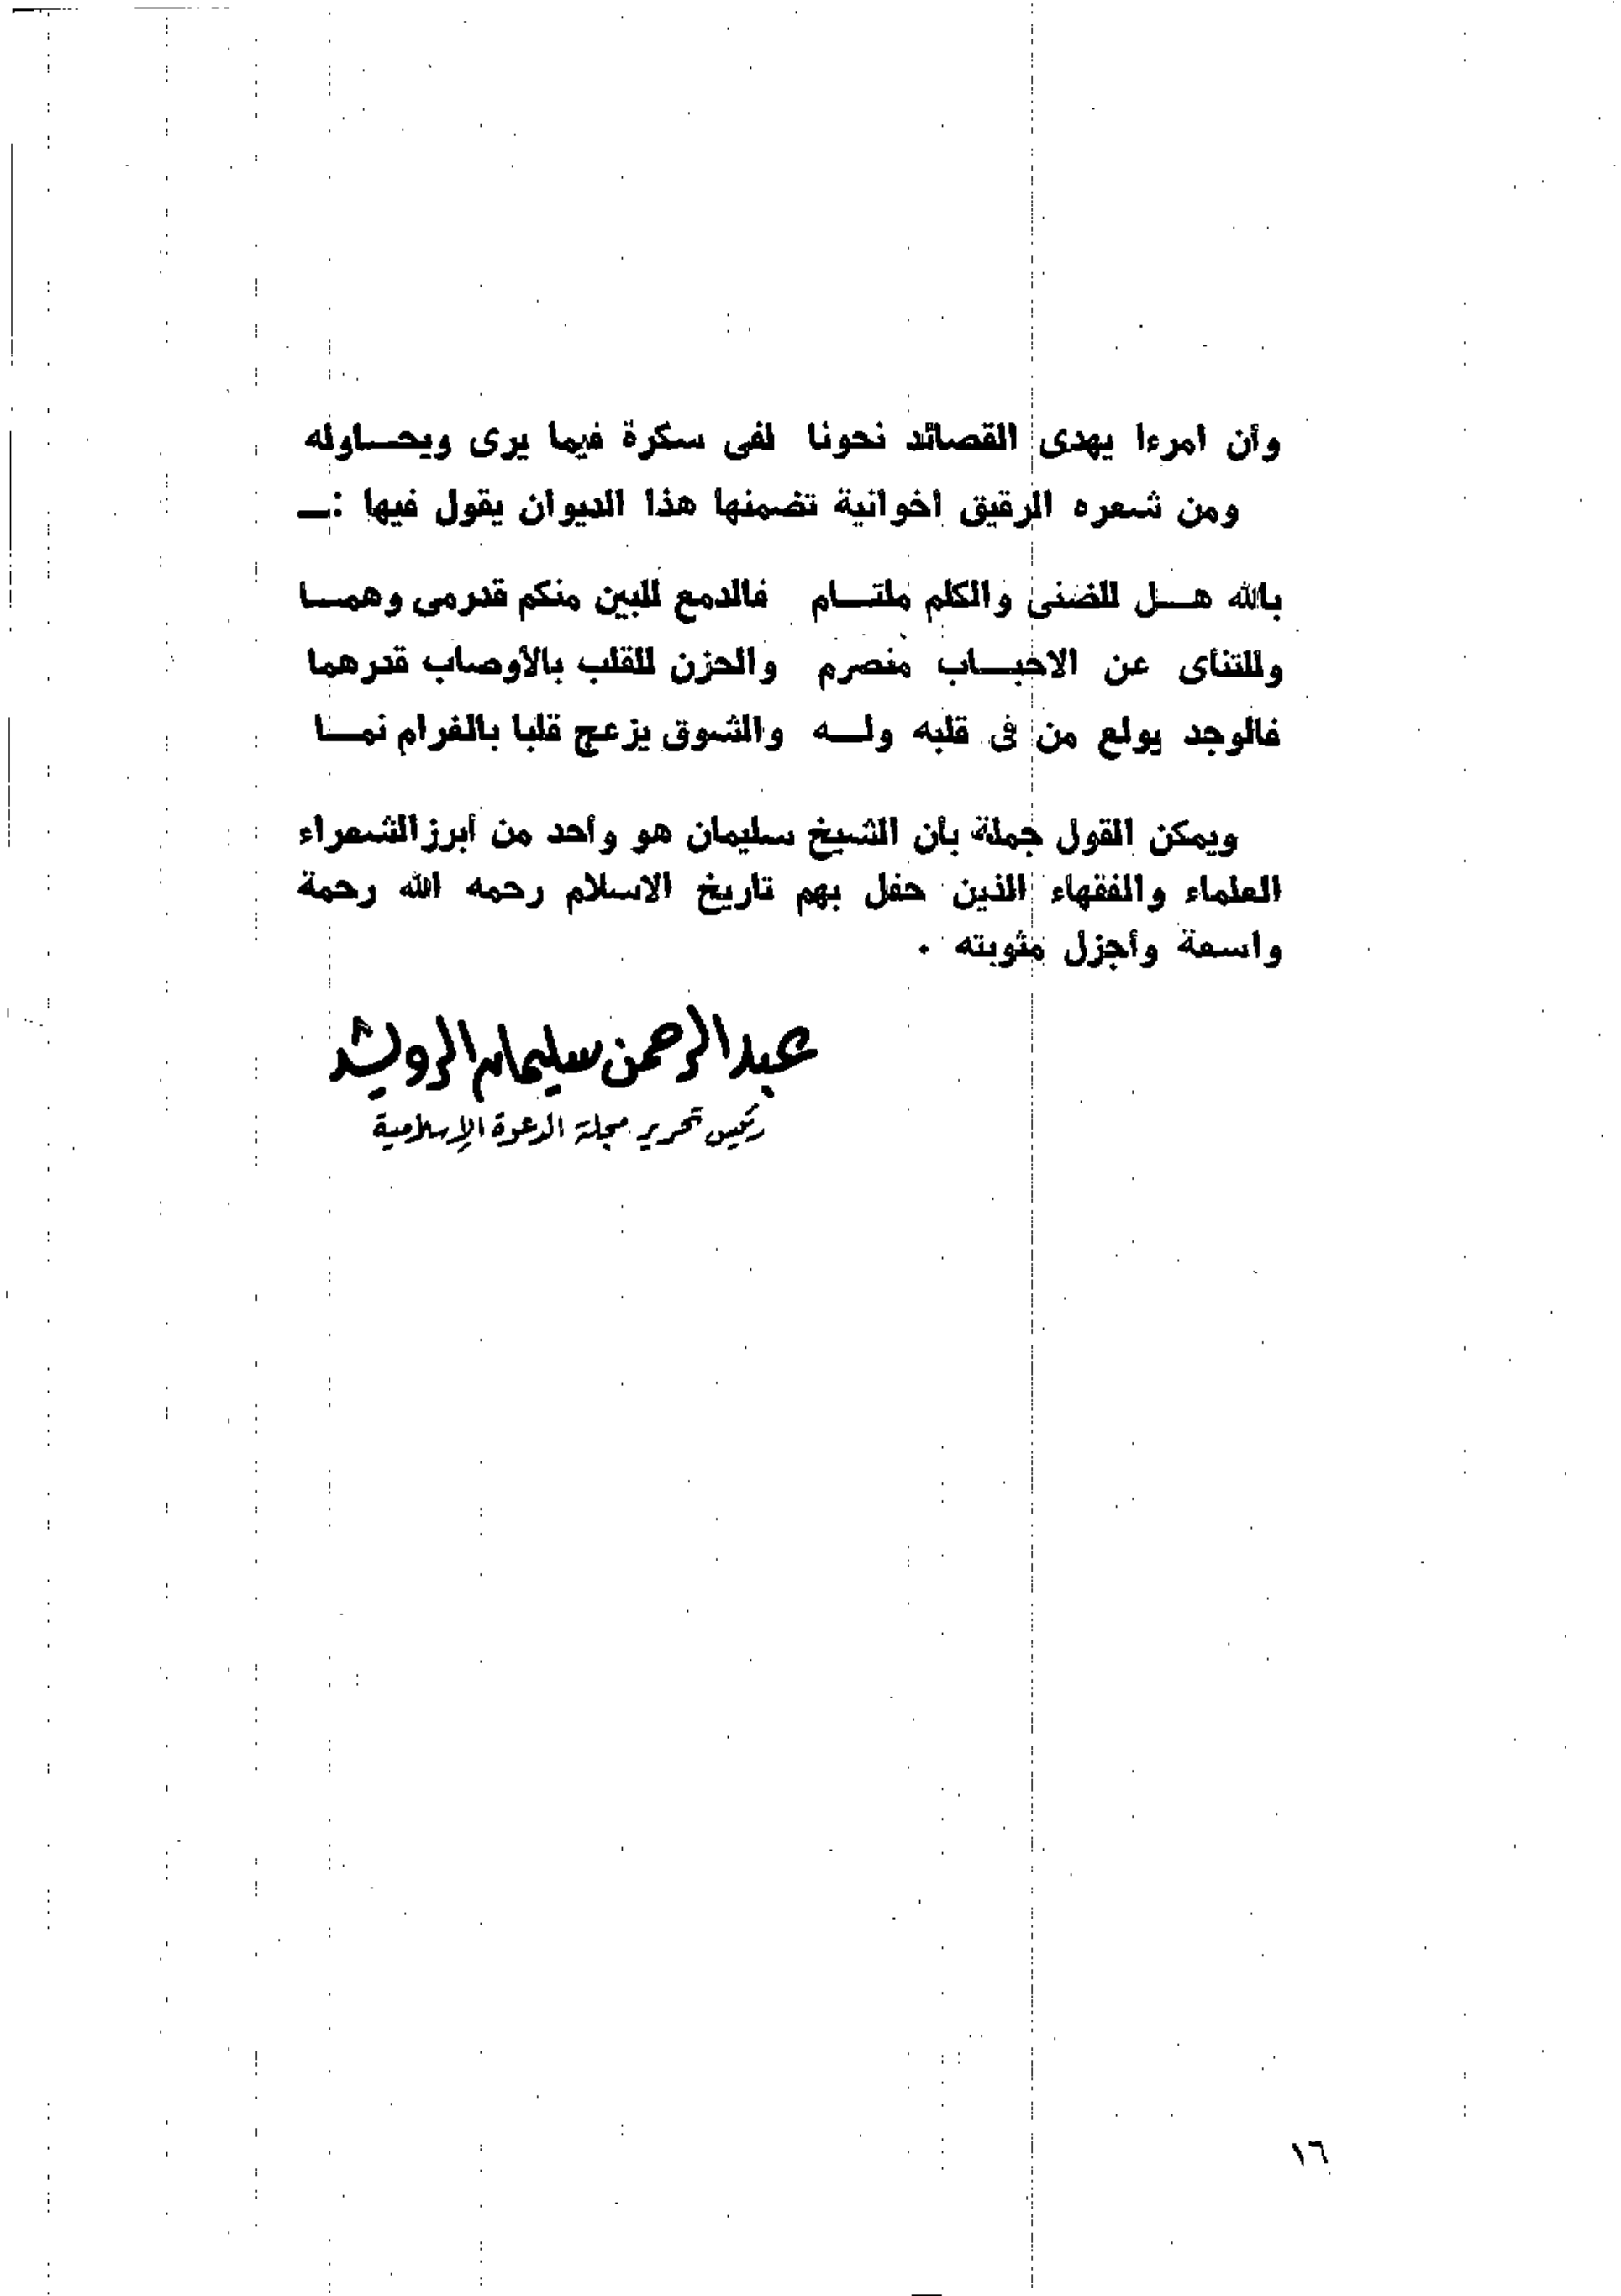 وأن امرءا يهدى القصائد نحونا لفى سكرة فيما يرى ويحـــاوله
ومن شعره الرقيق اخوانية تضمنها هذا الديوان يقول فيها :ــ
بالله هـــل للضنى والكلم ملتـــام فالدمع للبين منكم قدرمى وهمـــا
وللتنأى عن الاحبـــاب منصرم والحزن للقلب بالأوصاب قدرهما
فالوجد يولع من فى قلبه ولـــه والشوق يزعج قلبا بالغرام نمـــا
ويمكن القول جملة بأن الشيخ سليمان هو وأحد من أبرز الشعراء
العلماء والفقهاء الذين حفل بهم تاريخ الاسلام رحمه الله رحمة
واسعة وأجزل مثوبته .
عبدالرحمن سليمان الرويشد
رئيس تحرير مجلة الدعوة الإسلامية
١٦